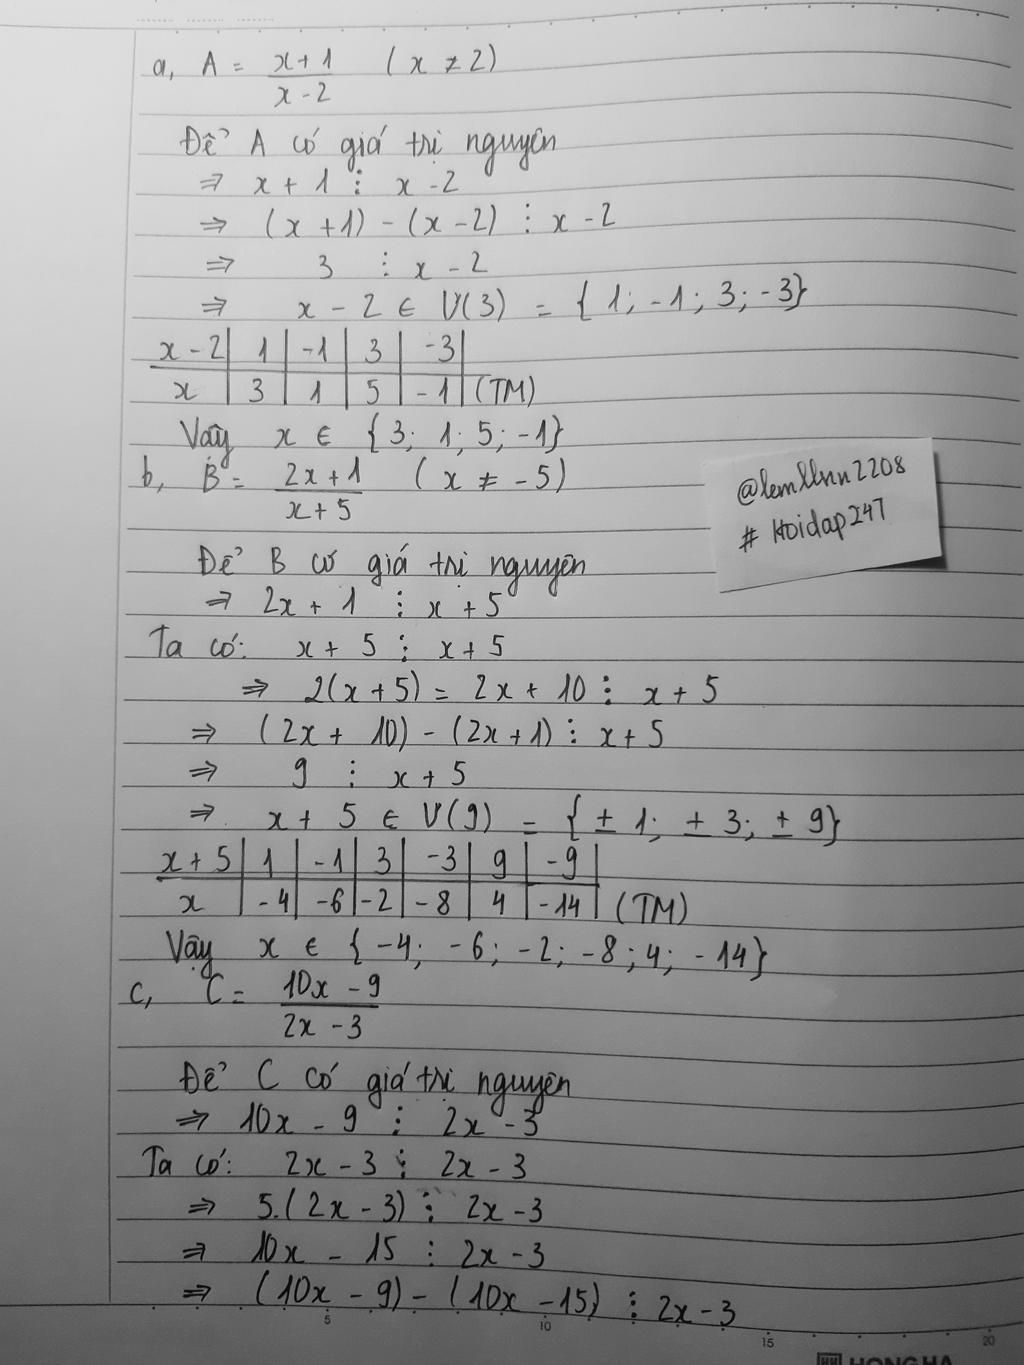 a, A = x+1 / x-2 (x ≠ 2)
Để A có giá trị nguyên
⇒ x + 1 ⋮ x - 2
⇒ (x + 1) - (x - 2) ⋮ x - 2
⇒ 3 ⋮ x - 2
⇒ x - 2 ∈ Ư(3) = {1; -1; 3; -3}
x - 2 | 1 | -1 | 3 | -3 |
x | 3 | 1 | 5 | -1 | (TM)
Vậy x ∈ {3; 1; 5; -1}
b, B = 2x + 1 / x + 5 (x ≠ -5)
@lemllnn2208
# Hoidap247
Để B có giá trị nguyên
⇒ 2x + 1 ⋮ x + 5
Ta có: x + 5 ⋮ x + 5
⇒ 2(x + 5) = 2x + 10 ⋮ x + 5
⇒ (2x + 10) - (2x + 1) ⋮ x + 5
⇒ 9 ⋮ x + 5
⇒ x + 5 ∈ Ư(9) = {± 1; ± 3; ± 9}
x + 5 | 1 | -1 | 3 | -3 | 9 | -9 |
x | -4 | -6 | -2 | -8 | 4 | -14 | (TM)
Vậy x ∈ {-4; -6; -2; -8; 4; -14}
c, C = 10x - 9 / 2x - 3
Để C có giá trị nguyên
⇒ 10x - 9 ⋮ 2x - 3
Ta có: 2x - 3 ⋮ 2x - 3
⇒ 5.(2x - 3) ⋮ 2x - 3
⇒ 10x - 15 ⋮ 2x - 3
⇒ (10x - 9) - (10x - 15) ⋮ 2x - 3
5 10 15 20
HONG HA